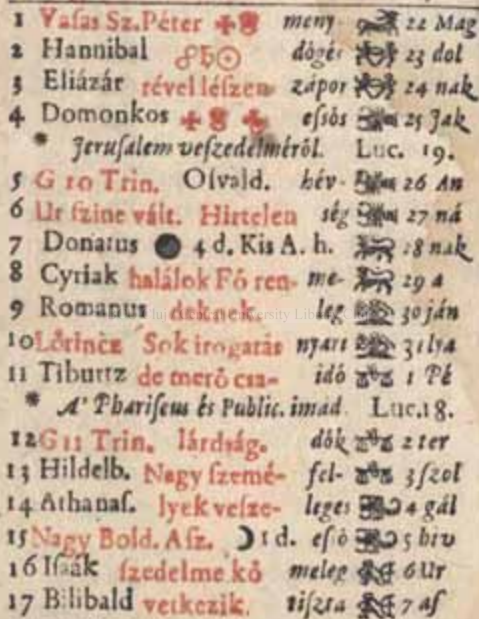 1 Vasas Sz. Péter meny- 22 Mag
2 Hannibal ♂♄☉ dögés 23 dol
3 Eliázár révelléſzen- zápor 24 nak
4 Domonkos eſsös 25 Jak
* Jeruſalem veſzedelméröl. Luc. 19.
5 G 10 Trin. Oſvald. hév- 26 An
6 Ur ſzine vált. Hirtelen ſég 27 ná
7 Donatus ● 4 d. Kis A. h. 28 nak
8 Cyriak halálok Fő ren- me- 29 a
9 Romanus deknek. leg 30 ján
10 Lőrincz Sok irogatás nyári 31 lya
11 Tiburtz de merő csa- idő 1 Pé
* A' Phariſeus és Public. imad. Luc. 18.
12 G 11 Trin. lárdság. dök 2 ter
13 Hildelb. Nagy ſzemé- fel- 3 ſzol
14 Athanaſ. lyek veſze- leges 4 gál
15 Nagy Bold. Aſz. ☽ 1 d. eſö 5 biv
16 Iſaák ſzedelme kö meleg 6 Ur
17 Bilibald vetkezik. tiſzta 7 aſ